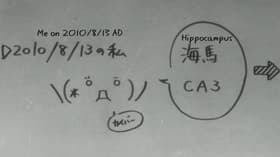 Me on 2010/8/13 AD
▷2010/8/13の私
Hippocampus
海馬
CA3